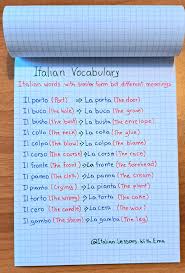 Italian Vocabulary
Italian words with similar form but different meanings
Il porto (Port) → La porta (The door)
Il buco (The hole) → La buca (The grave)
Il busto (The bust) → La busta (The envelope)
Il collo (The neck) → La colla (The glue)
Il colpo (The blow) → La colpa (The blame)
Il corso (The course) → La corsa (The race)
Il fronte (The front) → La fronte (The forehead)
Il panno (The cloth) → La panna (The cream)
Il pianto (Crying) → La pianta (The plant)
Il torto (The wrong) → La torta (The cake)
Il cero (The candle) → La cera (The wax)
Il gambo (The stem) → La gamba (The leg)
@Italian Lessons With